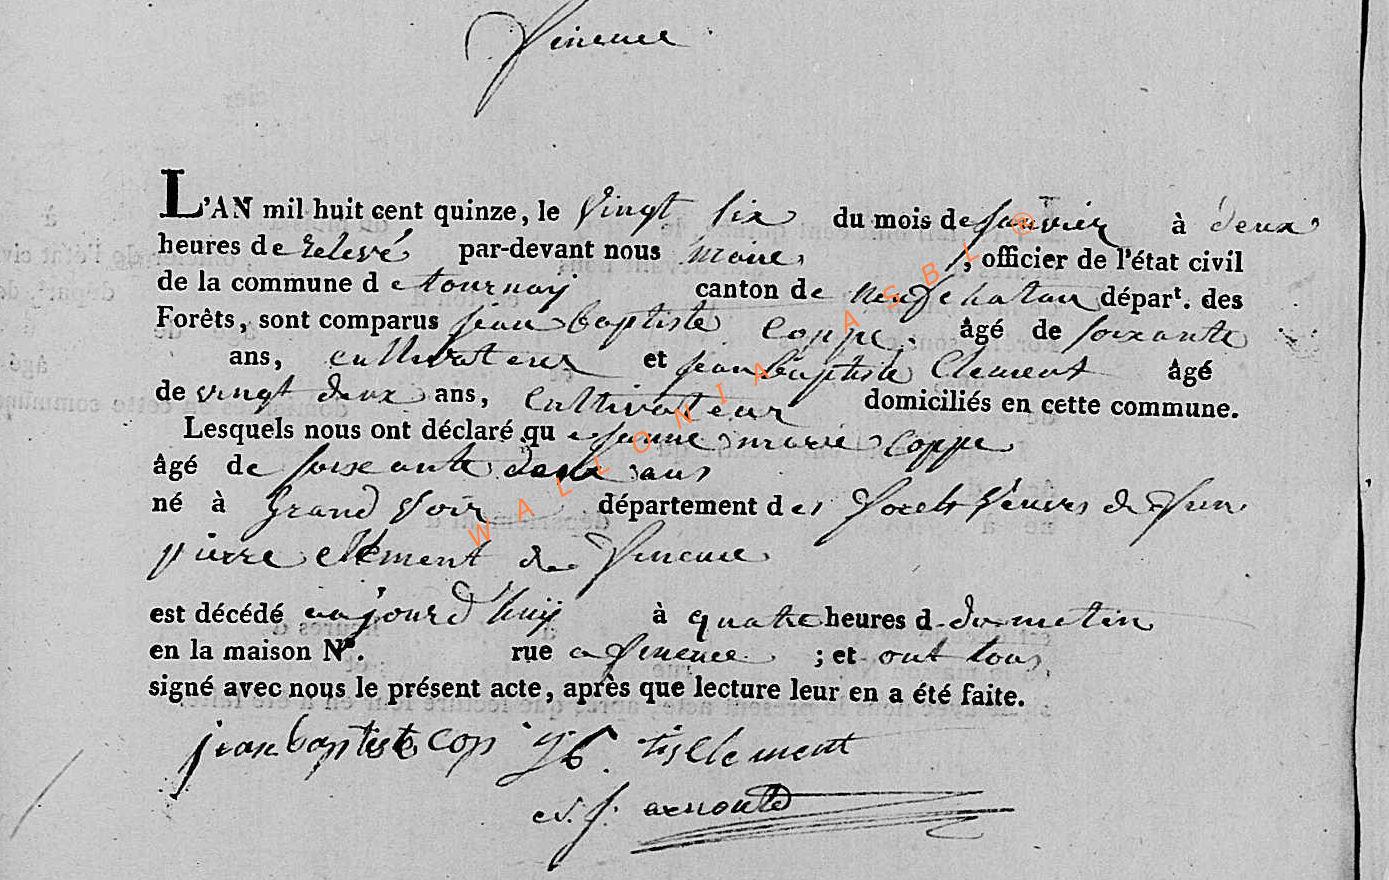 fineuse
L'AN mil huit cent quinze, le vingt six du mois de janvier à deux
heures de relevé par-devant nous maire, officier de l'état civil
de la commune de tournay canton de neufchatau départ. des
Forêts, sont comparus jean baptiste coppe. âgé de soixante
ans, cultivateur et jean baptiste Clement âgé
de vingt deux ans, cultivateur domiciliés en cette commune.
Lesquels nous ont déclaré que jeanne marie coppe
âgé de soixante deux ans
né à grand voir département des forets veuve de
pierre clément de fineuse
est décédé aujourd'huy à quatre heures d du matin
en la maison N°. rue a fineuse ; et ont tous
signé avec nous le présent acte, après que lecture leur en a été faite.
jean baptiste cop j b tis clement
arnould
WALLONIA ASBL ®